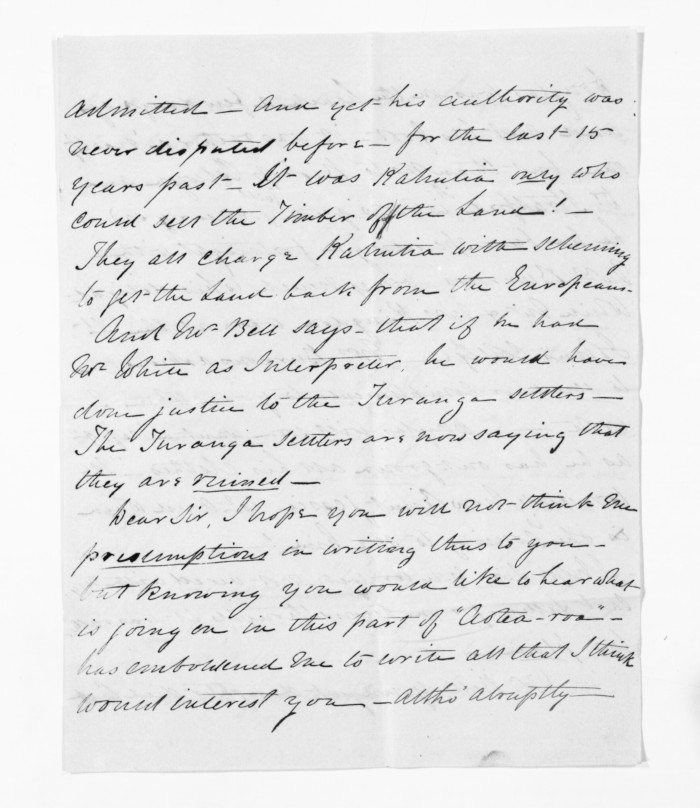 admitted — And yet his authority was
never disputed before — for the last 15
years past — It was Kahutia only who
could sell the Timber off the Land! —
They all charge Kahutia with scheming
to get the Land back from the Europeans —
And Mr Bell says — that if he had
Mr White as Interpreter, he would have
done justice to the Turanga settlers —
The Turanga Settlers are now saying that
they are ruined —
Dear Sir, I hope you will not think me
presumptious in writing thus to you —
but knowing you would like to hear what
is going on in this part of "Aotea-roa" —
has emboldened me to write all that I think
would interest you — altho' abruptly —